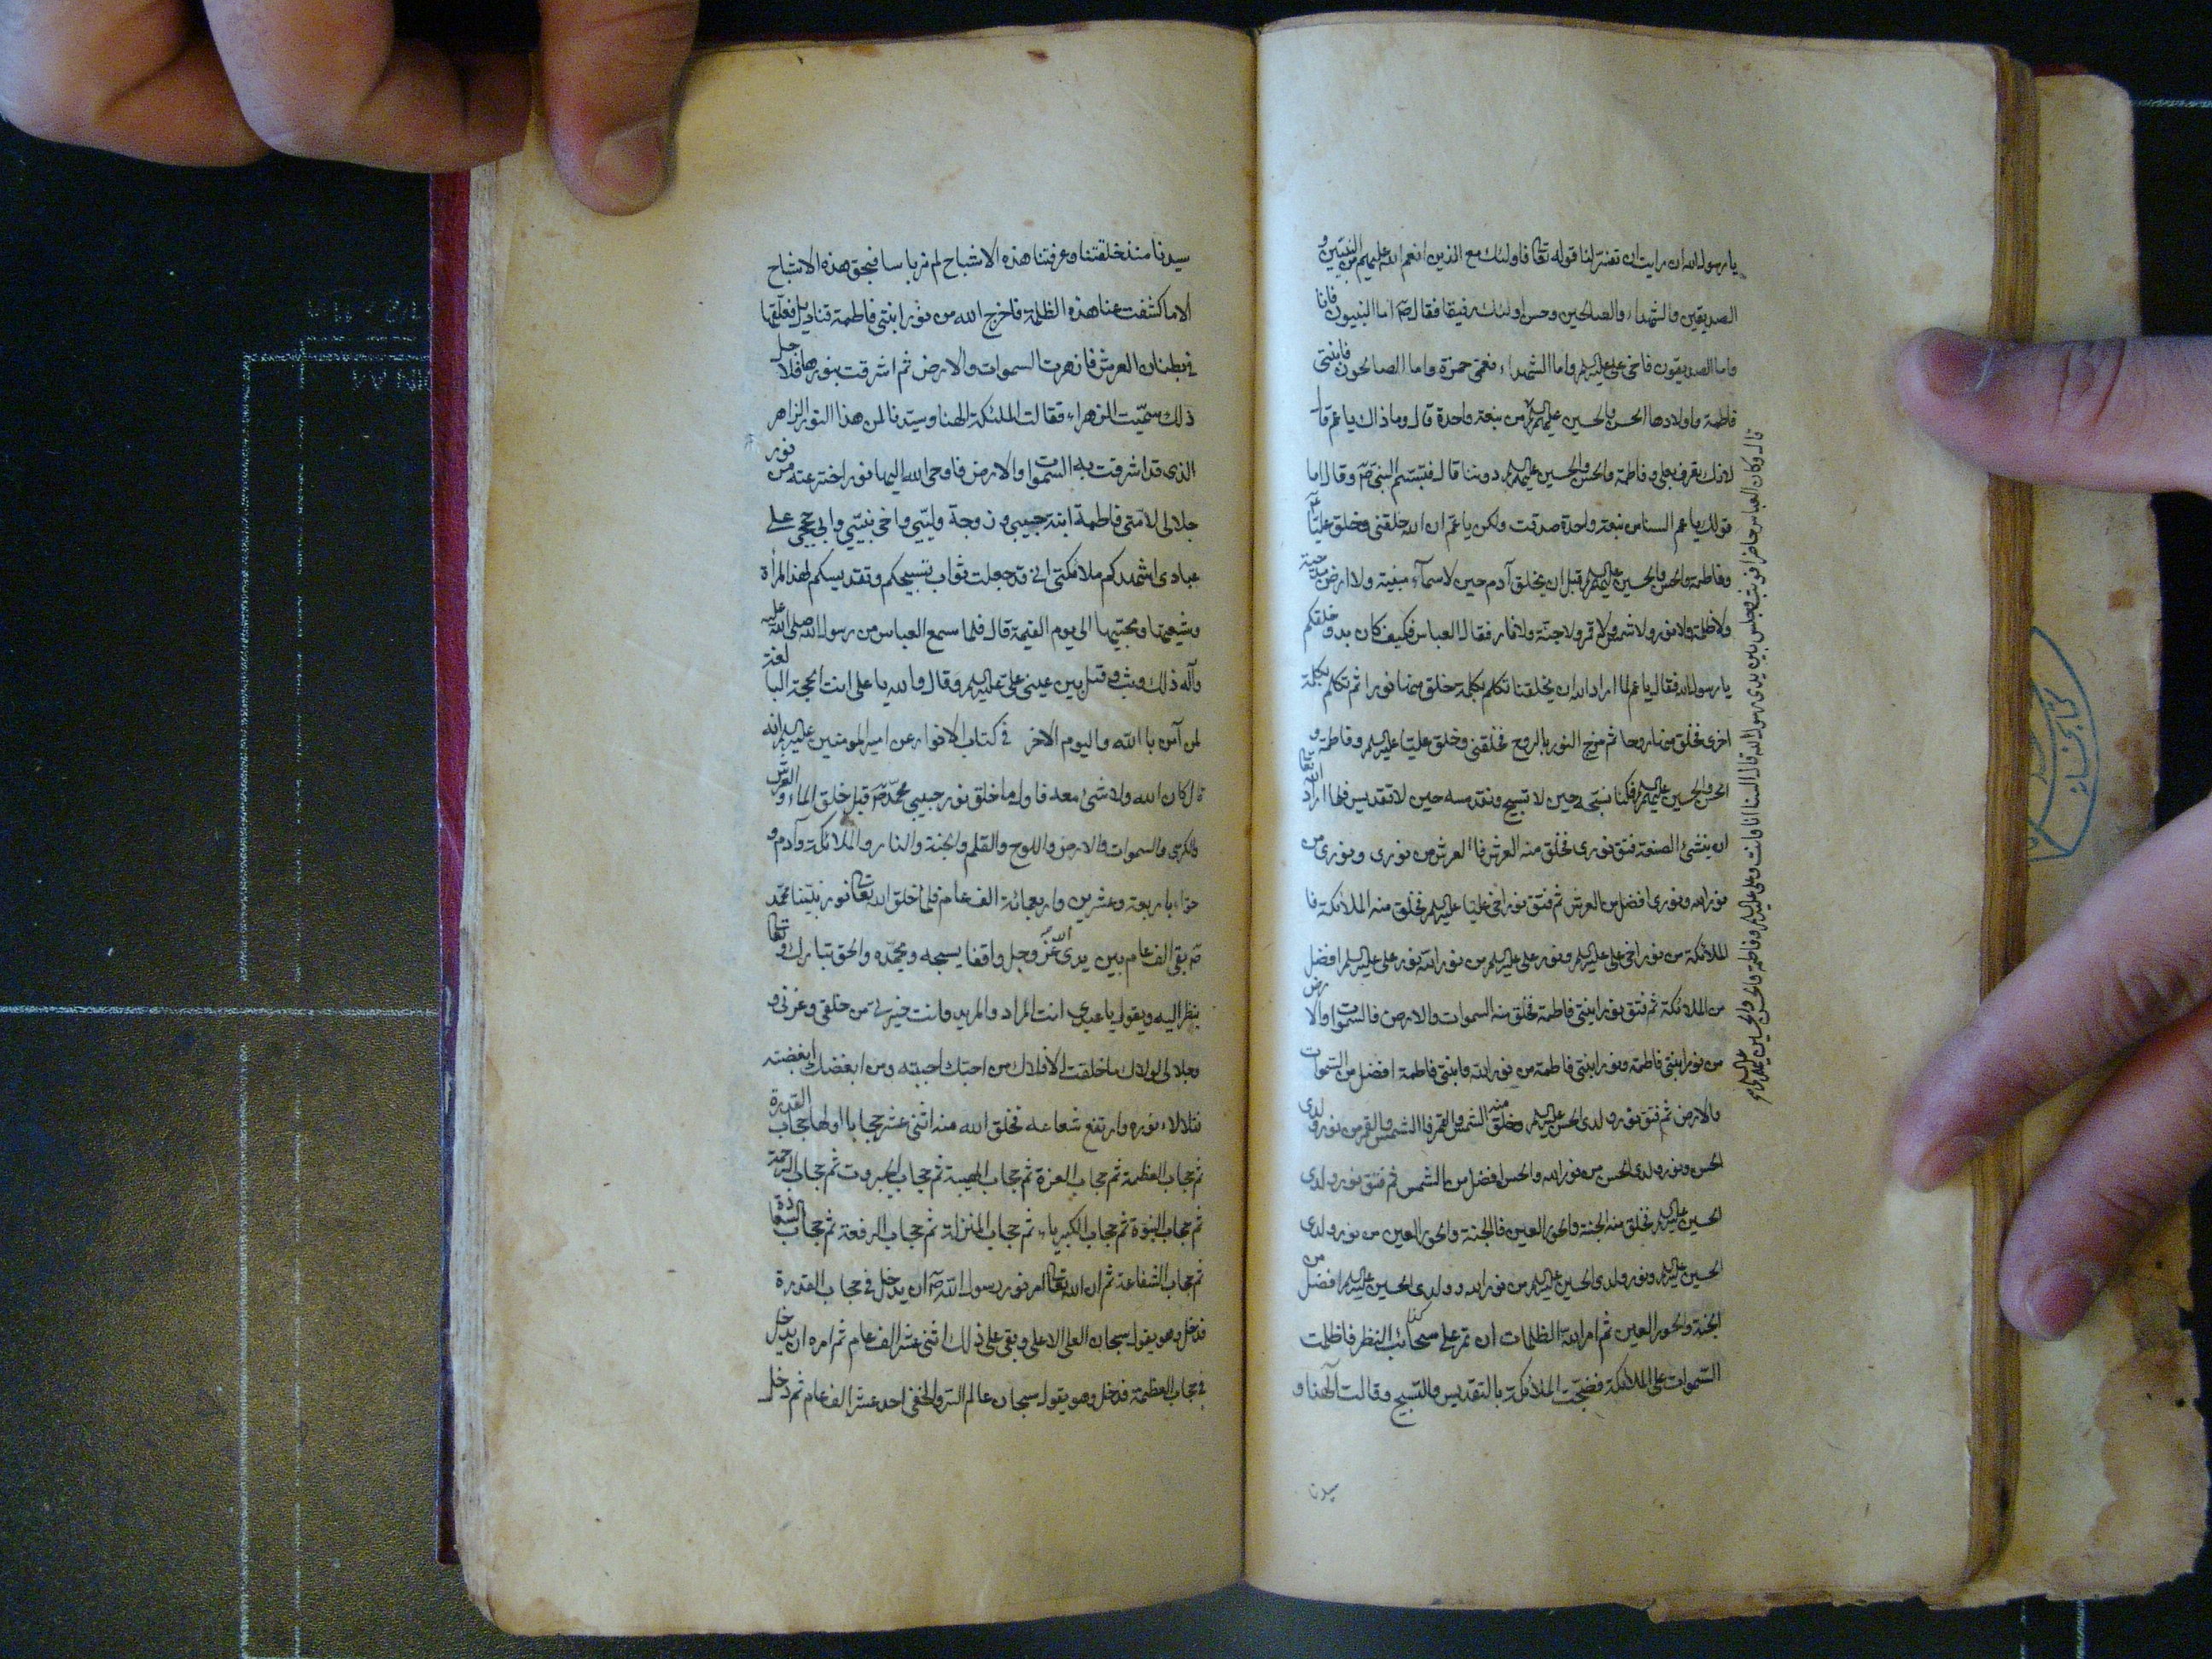 يا رسول الله ان رايت ان تفسر لنا قوله تعا فاولئك مع الذين انعم الله عليهم من النبيين و
الصديقين والشهداء والصالحين وحسن اولئك رفيقا فقال صم اما النبيون فانا
واما الصديقون فاخي علي عليه السلم واما الشهداء فعمي حمزة واما الصالحون فابنتي
فاطمة واولادها الحسن والحسين عليهم السلم من نبعة واحدة قال وما ذاك يا عم قال
لانك تعرف بعلي وفاطمة والحسن والحسين عليهم السلم دوننا قال فتبسم النبي صم وقال اما
قولك يا عم السنا من نبعة واحدة صدقت ولكن يا عم ان الله خلقني وخلق عليا
وفاطمة والحسن والحسين عليهم السلم قبل ان يخلق آدم حين لا سمآء مبنية ولا ارض مدحية
ولا ظلمة ولا نور ولا شمس ولا قمر ولا جنة ولا نار فقال العباس فكيف كان بدو خلقكم
يا رسول الله فقال يا عم لما اراد الله ان يخلقنا تكلم بكلمة خلق منها نورا ثم تكلم بكلمة
اخرى فخلق منها روحا ثم مزج النور بالروح فخلقني وخلق عليا عليه السلم وفاطمة و
الحسن والحسين عليهم السلم فكنا نسبحه حين لا تسبيح ونقدسه حين لا تقديس فلما اراد الله تعا
ان ينشئ الصنعة فتق نوري فخلق منه العرش فا العرش من نوري ونوري من
نور الله ونوري افضل من العرش ثم فتق نور اخي عليا عليه السلم فخلق منه الملائكة فا
الملائكة من نور اخي علي عليه السلم ونور علي عليه السلم من نور الله نور علي عليه السلم افضل
من الملائكة ثم فتق نور ابنتي فاطمة فخلق منه السموات والارض فالسموات والارض
من نور ابنتي فاطمة ونور ابنتي فاطمة من نور الله وابنتي فاطمة افضل من السموات
والارض ثم فتق نور ولدي الحسن عليه السلم وخلق منه الشمس والقمر فا الشمس والقمر من نور ولدي
الحسن ونور ولدي الحسن من نور الله والحسن افضل من الشمس ثم فتق نور ولدي
الحسين عليه السلم فخلق منه الجنة والحور العين فالجنة والحور العين من نور ولدي
الحسين عليه السلم ونور ولدي الحسين عليه السلم من نور الله وولدي الحسين عليه السلم افضل من
الجنة والحور العين ثم امر الله الظلمات ان تمر على سحائب النظر فاظلمت
السموات على الملائكة فضجت الملائكة بالتقديس والتسبيح وقالت آلهنا و
سيدنا
قال وكان العباس حاضرا فوثب وجلس بين يدي رسول الله قال السنا انا وانت وعلي عليه السلم وفاطمة والحسن والحسين عليهم السلم
سيدنا منذ خلقتنا وعرفتنا هذه الاشباح لم نر باسا فبحق هذه الاشباح
الا ما كشفت عنا هذه الظلمة فاخرج الله من نور ابنتي فاطمة قناديل فعلقها
في بطنان العرش فازهرت السموات والارض ثم اشرقت بنورها فلاجل
ذلك سميت الزهراء فقالت الملئكة الهنا وسيدنا لمن هذا النور الزاهر
الذي قد اشرقت به السموات والارض فاوحى الله اليها نور اخترعته من نور
جلالي لامتي فاطمة ابنة حبيبي وزوجة وليي واخي نبيي وابي حججي على
عبادي اشهدكم ملائكتي اني قد جعلت ثواب تسبيحكم وتقديسكم لهذا المرأة
وشيعتها ومحبيها الى يوم القيمة قال فلما سمع العباس من رسول الله صلى الله عليه
وآله ذلك وثب وقبل بين عيني علي عليه السلم وقال والله يا علي انت الحجة البالغة
لمن آمن با الله واليوم الآخر في كتاب الانوار عن امير المومنين عليه السلم انه
قال كان الله ولا شئ معه فاول ما خلق نور حبيبي محمد صم قبل خلق الماء والعرش
والكرسي والسموات والارض واللوح والقلم والجنة والنار والملائكة وآدم و
حواء باربعة وعشرين واربعمائة الف عام فلما خلق الله تعا نور نبينا محمد
صم بقي الف عام بين يدي الله عز وجل واقفا يسبحه ويحمده والحق تبارك وتعا
ينظر اليه ويقول يا عبدي انت المراد والمريد وانت خيرتي من خلقي وعزتي و
جلالي لولاك ما خلقت الافلاك من احبك احببته ومن ابغضك ابغضته
فتلالاء نوره وارتفع شعاعه فخلق الله منه اثني عشر حجابا اولها حجاب القدرة
ثم حجاب العظمة ثم حجاب العزة ثم حجاب الهيبة ثم حجاب الجبروت ثم حجاب الرحمة
ثم حجاب النبوة ثم حجاب الكبرياء ثم حجاب المنزلة ثم حجاب الرفعة ثم حجاب السعادة
ثم حجاب الشفاعة ثم ان الله تعا امر نور رسول الله صم ان يدخل في حجاب القدرة
فدخل وهو يقول سبحان العلي الاعلى وبقي على ذلك اثني عشر الف عام ثم امره ان يدخل
في حجاب العظمة فدخل وهو يقول سبحان عالم السر والخفي احد عشر الف عام ثم دخل